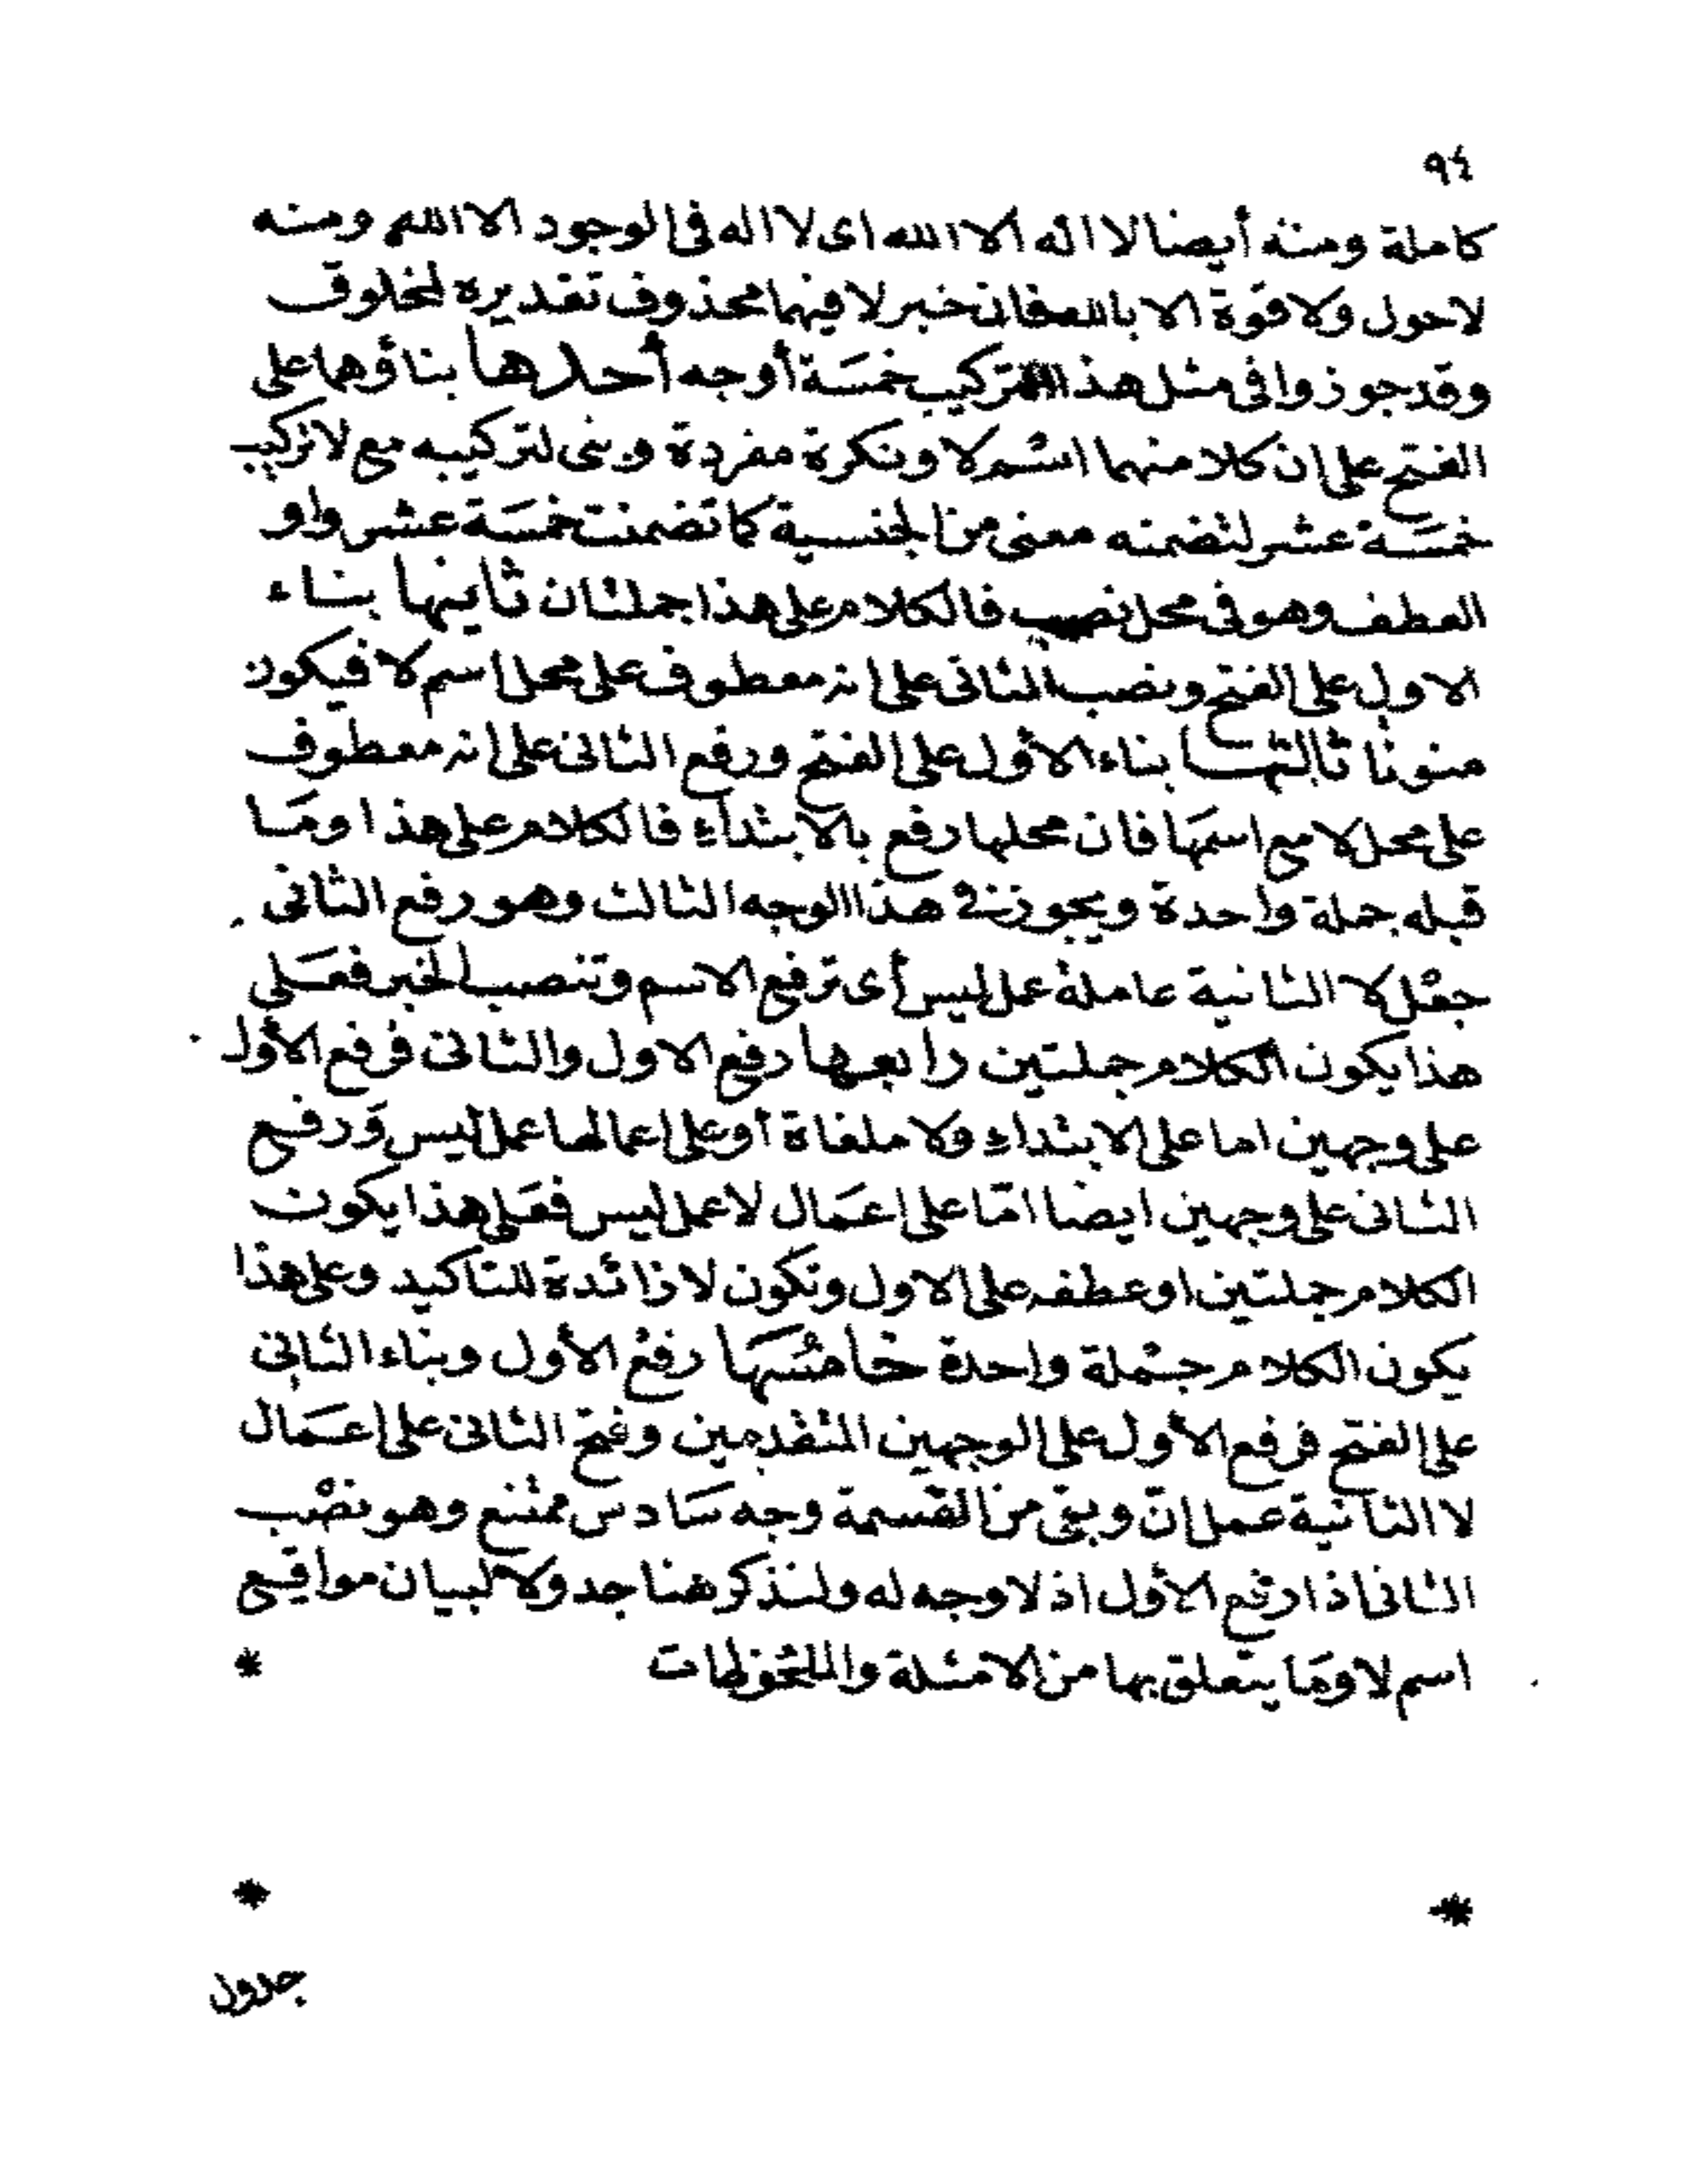 ٩٤
كاملة ومنه أيضا لا اله الا الله اى لا اله فى الوجود الا الله ومنه
لاحول ولا قوّة الا بالله فان خبر لا فيهما محذوف تقديره لمخلوق
وقد جوزوا فى مثل هذا التركيب خمسَة أوجه أحدها بناؤهما على
الفتح على ان كلا منهما اسم لا ونكرة مفردة وبنى لتركيبه مع لا تركيب
خمسَة عشر لتضمنه معنى من الجنسية كما تضمنت خمسَة عشر واو
العطف وهو فى محل نصب فالكلام على هذا جملتان ثانيها بناء
الاول على الفتح ونصب الثانى على انه معطوف على محل اسم لا فيكون
منونا ثالثها بناء الاوّل على الفتح ورفع الثانى على انه معطوف
على محل لا مع اسمهَا فان محلها رفع بالابتداء فالكلام على هذا ومَا
قبله جملة واحدة ويجوز فى هذا الوجه الثالث وهو رفع الثانى
جعْل لا الثانية عاملة عمل ليس أى ترفع الاسم وتنصب الخبر فعَلى
هذا يكون الكلام جملتين رابعها رفع الاول والثانى فرفع الأول
على وجهين اما على الابتداء ولا ملغاة أو على اعمالها عمل ليس وَرفع
الثانى على وجهين ايضا امّا على اعمَال لا عمل ليس فعَلى هذا يكون
الكلام جملتين او عطفه على الاول وتكون لا زائدة للتاكيد وعلى هذا
يكون الكلام جمْلة واحدة خامسُهَا رفعُ الأول وبناء الثانى
على الفتح فرفع الأول على الوجهين المتقدمين وفتح الثانى على اعمَال
لا الثانية عمل انّ وبقى من القسمة وجه سَادس ممتنع وهو نصْب
الثانى اذا رفع الأول اذ لا وجه له ولنذكر هنا جدولا لبيان مواقع
اسم لا ومَا يتعلق بها من الامثلة والملحُوظات *
* *
جدول